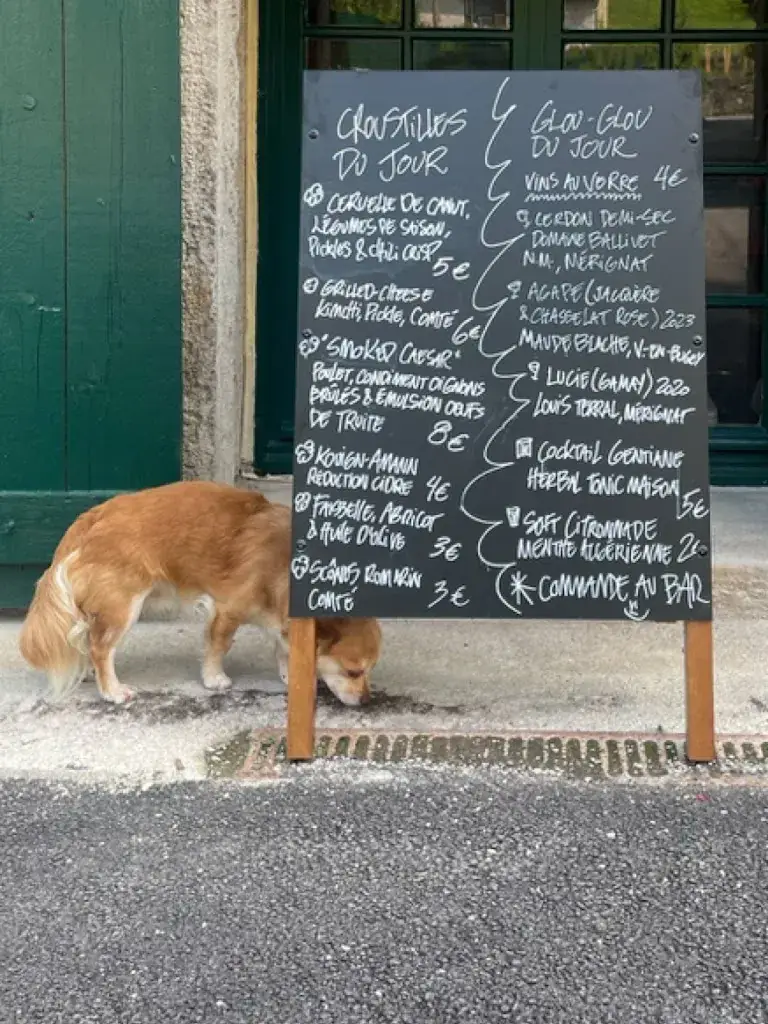 CROUSTILLES
DU JOUR
CERVELLE DE CANUT,
LÉGUMES DE SAISON,
Pickles & chili crisp
5€
GRILLED-CHEESE
Kimchi, Pickle, Comté
6€
"SMOKED CAESAR"
POULET, CONDIMENT OIGNONS
BRÛLÉS & ÉMULSION OEUFS
DE TRUITE
8€
KOUIGN-AMANN
RÉDUCTION CIDRE 4€
FAISSELLE, ABRICOT
& HUILE D'OLIVE 3€
SCONES ROMARIN
COMTÉ 3€
GLOU-GLOU
DU JOUR
VINS AU VERRE 4€
CERDON DEMI-SEC
DOMAINE BALLIVET
N.M., MÉRIGNAT
AGAPE (JACQUÈRE
& CHASSELAT ROSE) 2023
MAUDE BLACHE, V-EN-BUGEY
LUCIE (GAMAY) 2020
LOUIS TERRAL, MÉRIGNAT
COCKTAIL GENTIANE
HERBAL TONIC MAISON
5€
SOFT CITRONNADE
MENTHE ALGÉRIENNE 2€
* COMMANDE AU BAR